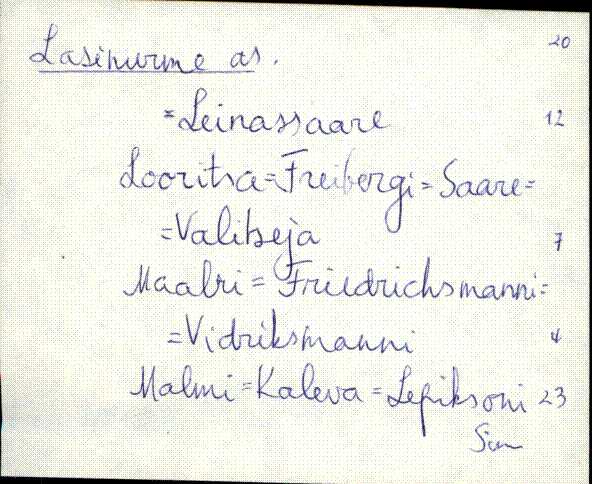 20
Lasinurme as.
=Leinassaare 12
Looritsa=Freibergi=Saare=
=Valitseja 7
Maalri=Friedrichsmanni=
=Vidriksmanni 4
Malmi=Kaleva=Lepiksoni 23
Sim